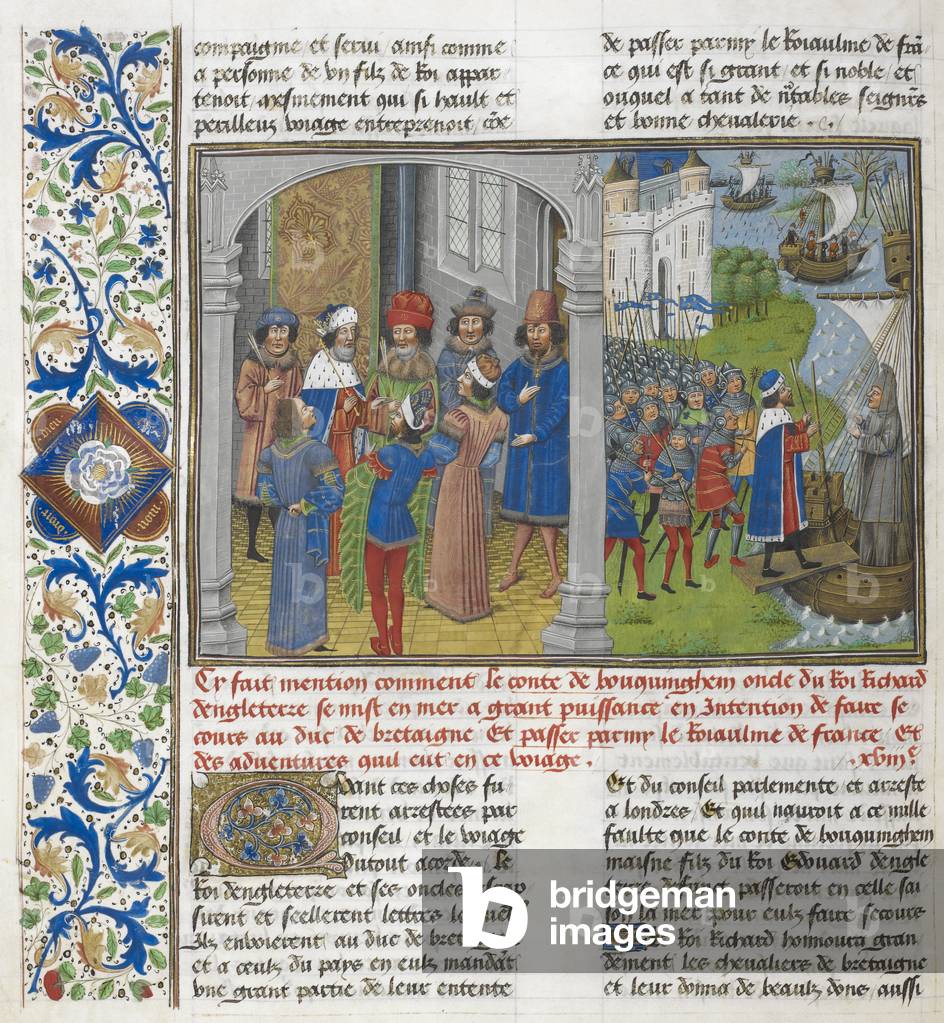 compaigme et serui ainsi comme
a personne de vng filz de Roi appar
tenoit mesmement qui si hault et
perilleux voiage entreprenoit
de passer parmy le Roiaulme de
ce qui est si grant et si noble et
ouquel a tant de notables seignrs
et bonne cheualerie
dieu
mon
droit
Cy fait mention comment le conte de bouquinghem oncle du Roi Richard
dengleterre se mist en mer a grant puissance en Intention de faire se
cours au duc de bretaigne Et passer parmy le Roiaulme de france Et
des aduentures quil eut en ce voiage . .xviij.
Quant ces choses fu
rent arrestees par
conseil et le voiage
Dutout acorde Le
Roi dengleterre et ses oncles
sirent et seellerent lettres
Ilz enuoierent au duc de
et a ceulz du pays en eulz mandant
vne grant partie de leur entente
Et du conseil parlemente et arreste
a londres Et quil nauroit a ce mille
faulte que le conte de bouquinghem
maisne filz du Roi Edouard dengle
passeroit en celle sai
son la mer pour eulz faire secours
Roi Richard honnoura gran
dement les cheualiers de bretaigne
et leur donna de beaulz dons aussi
b bridgeman
images